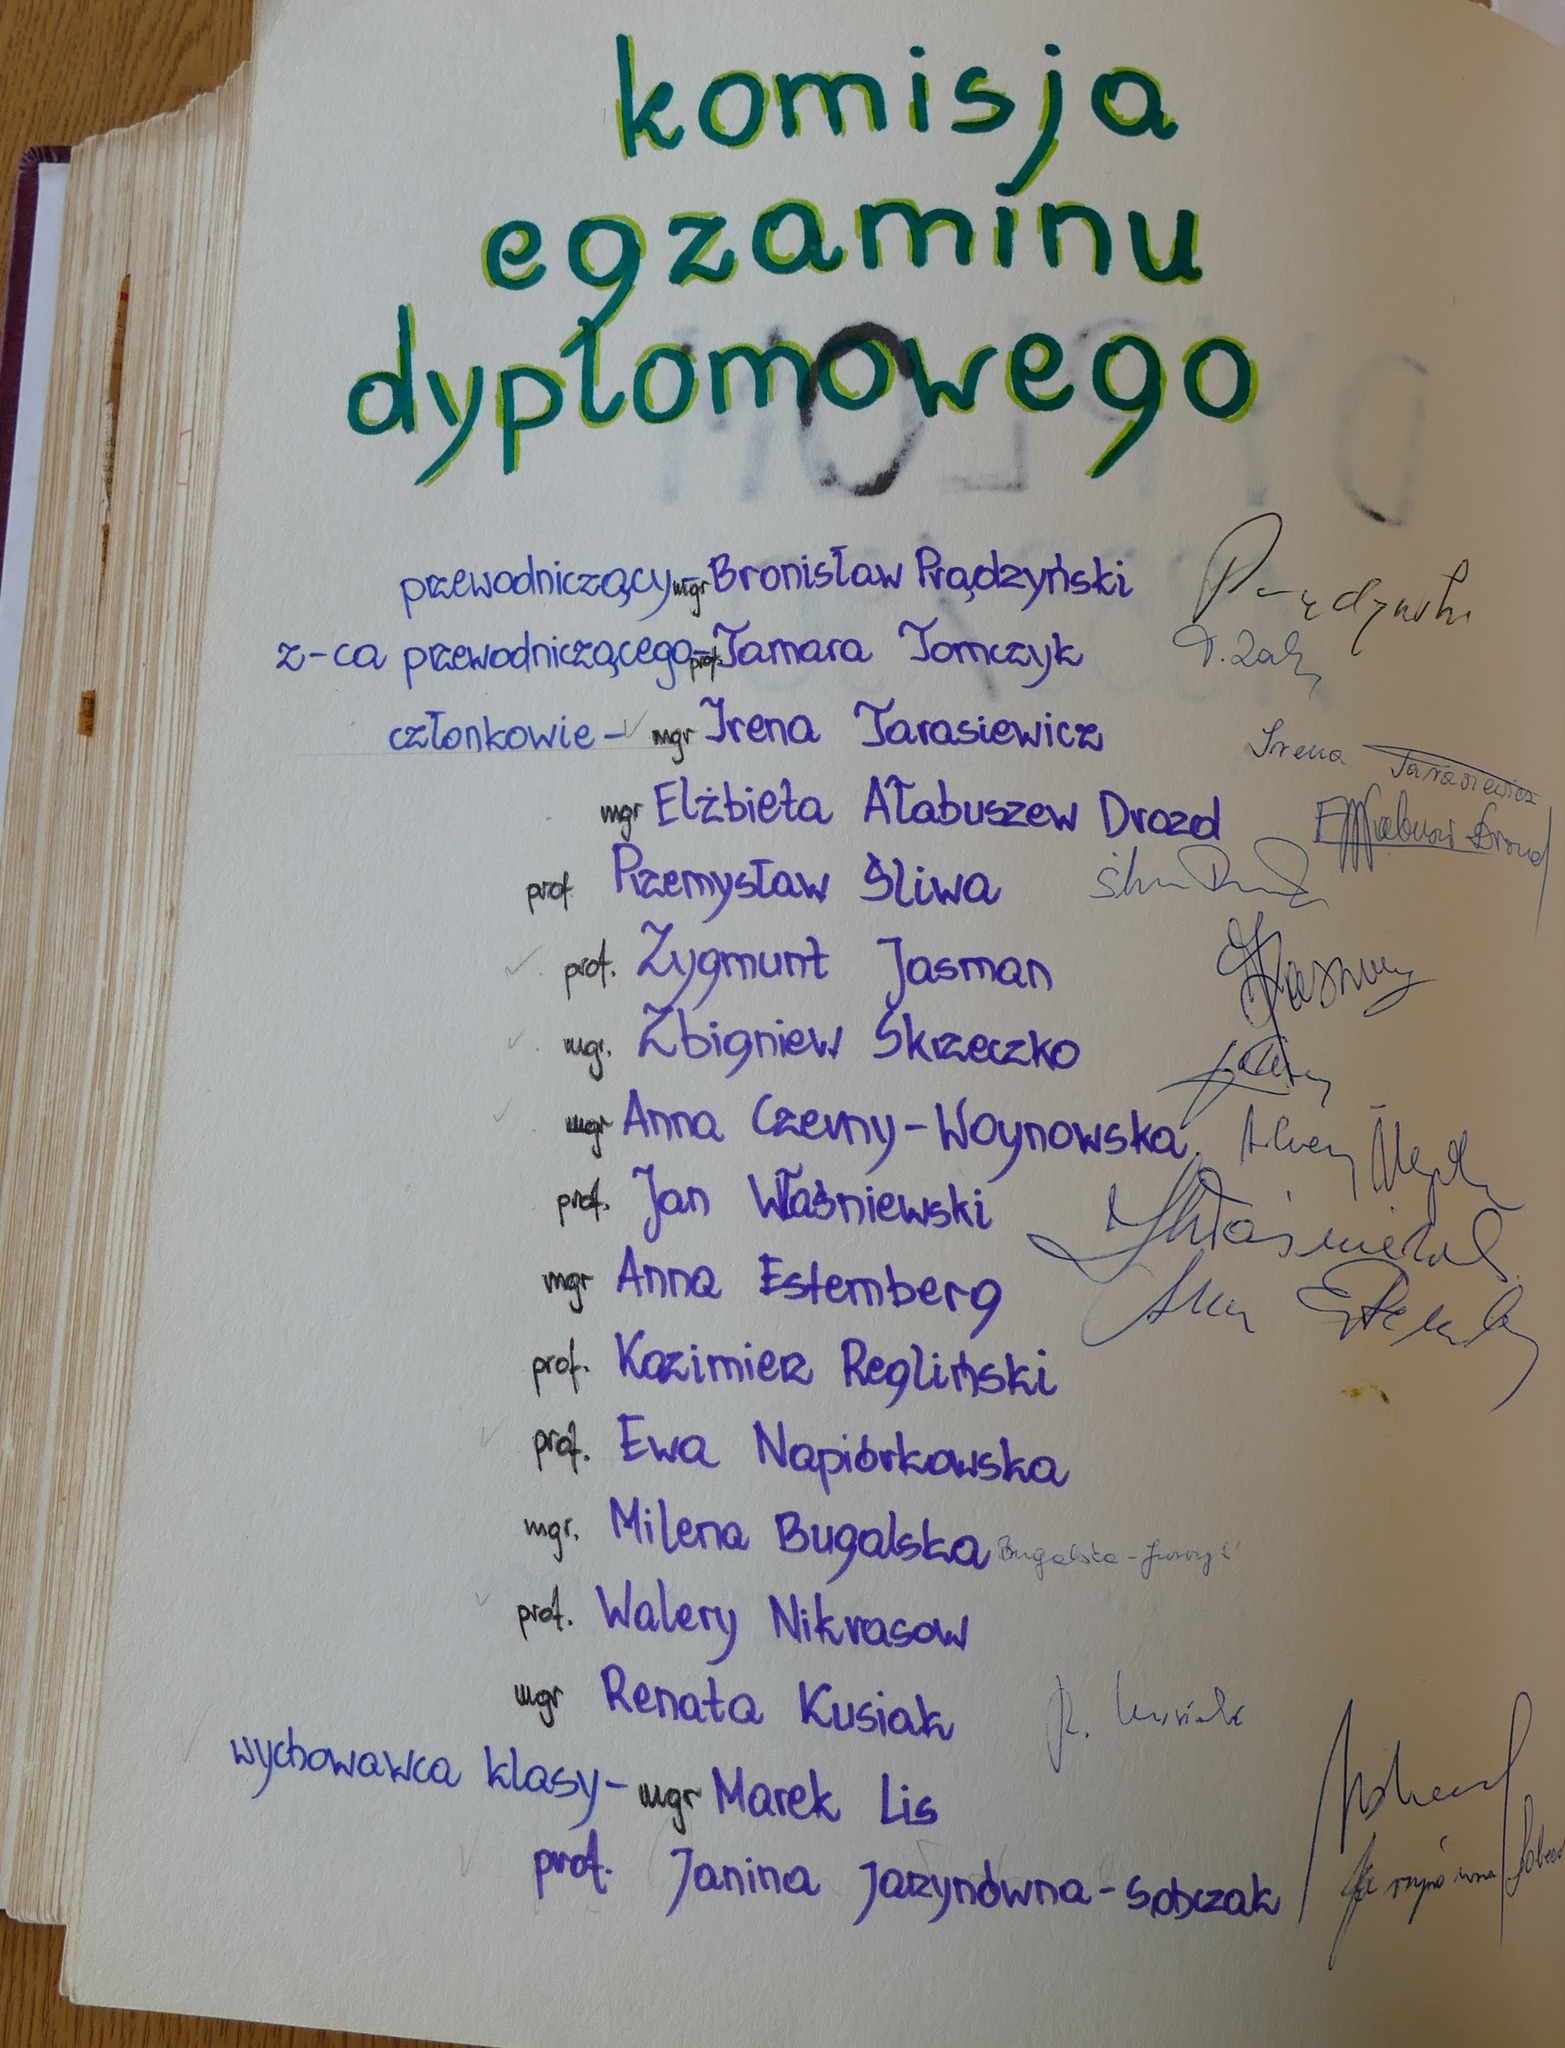 komisja
egzaminu
dyplomowego
przewodniczący - mgr Bronisław Prądzyński
z-ca przewodniczącego - prof. Tamara Tomczyk
członkowie - mgr Irena Tarasiewicz Irena Tarasiewicz
mgr Elżbieta Ałabuszew Drozd
prof. Przemysław Śliwa
prof. Zygmunt Jasman
mgr. Zbigniew Skrzeczko
mgr Anna Czerny-Woynowska
prof. Jan Właśniewski
mgr Anna Estemberg
prof. Kazimierz Regliński
prof. Ewa Napiórkowska
mgr. Milena Bugalska Bugalska-
prof. Walery Nikrasow
mgr Renata Kusiak R. Kusiak
wychowawca klasy - mgr Marek Lis
prof. Janina Jarzynówna-Sobczak